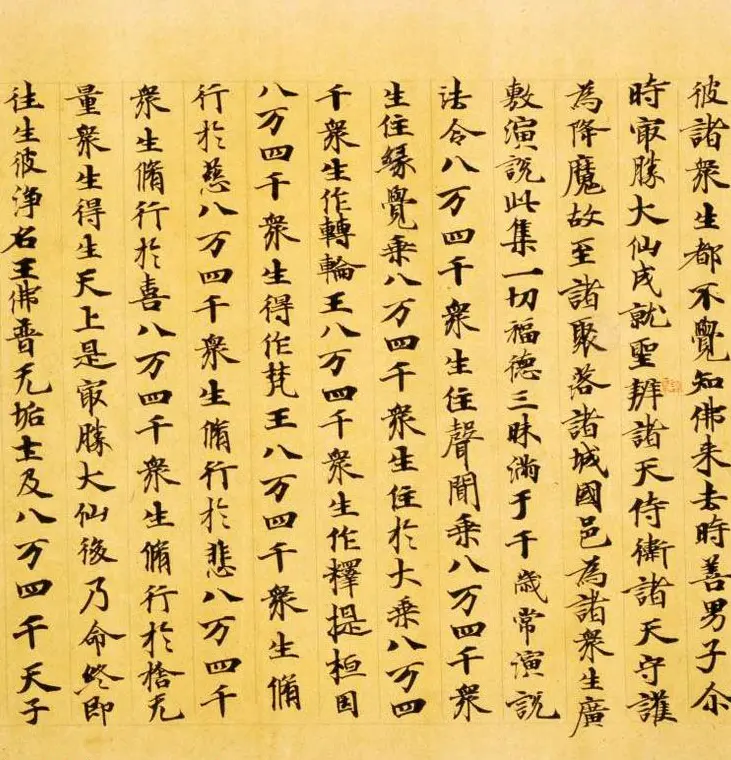 彼諸衆生都不覺知佛来去時善男子尒
時㝡勝大仙成就聖辯諸天侍衛諸天守護
為降魔故至諸聚落諸城國邑為諸衆生廣
敷演說此集一切福德三昧滿于千歲常演說
法令八万四千衆生住聲聞乗八万四千衆
生住縁覺乗八万四千衆生住於大乗八万四
千衆生作轉輪王八万四千衆生作釋提桓因
八万四千衆生得作梵王八万四千衆生脩
行於慈八万四千衆生脩行於悲八万四千
衆生脩行於喜八万四千衆生脩行於捨无
量衆生得生天上是㝡勝大仙後乃命終即
往生彼淨名王佛普无垢土及八万四千天子